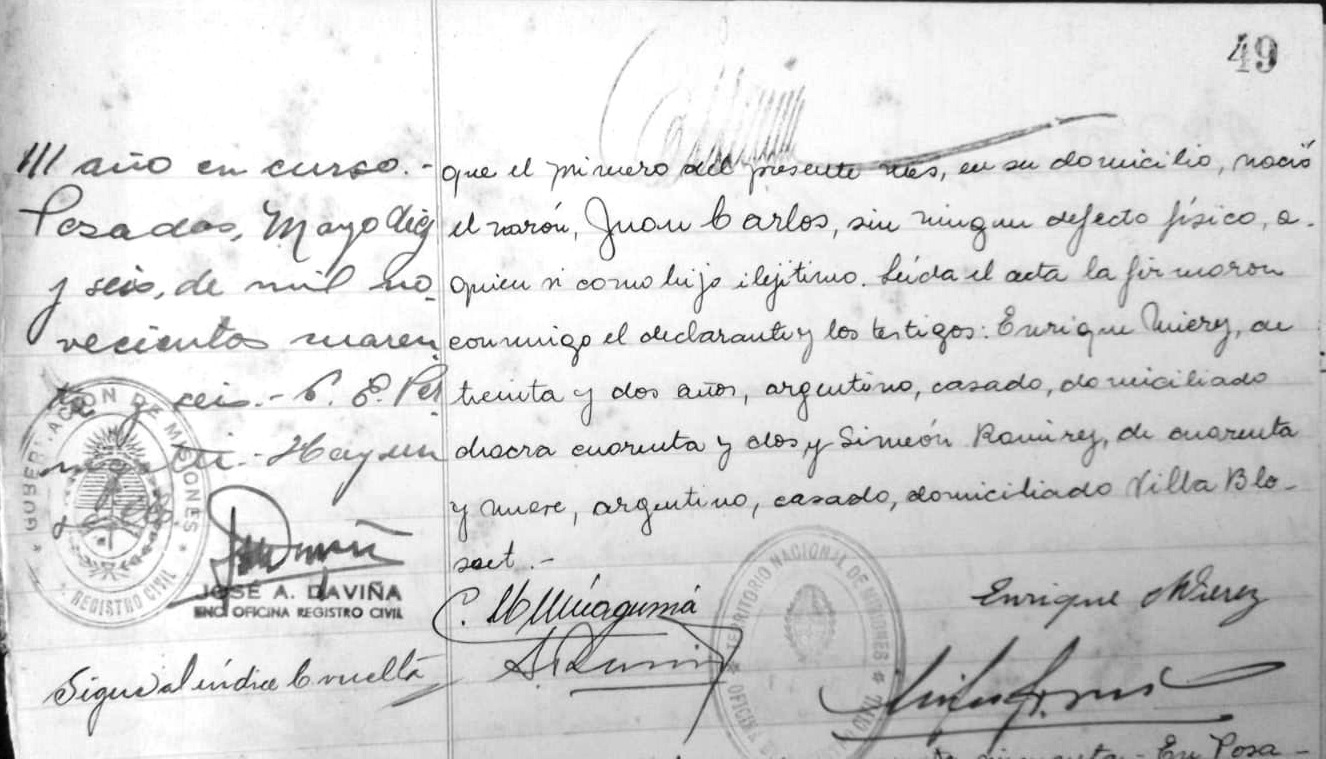 49
/// año en curso.-
Posadas, Mayo diez
y seis, de mil no-
vecientos cuaren-
ta y seis.- C. E. Per
.- Hay un
GOBERNACION DE MISIONES
REGISTRO CIVIL
JOSÉ A. DAVIÑA
ENC. OFICINA REGISTRO CIVIL
Sigue al índice vuelta
que el primero del presente mes, en su domicilio, nació
el varón, Juan Carlos, sin ningun defecto físico, a.
quien vi como hijo ilejitimo. Leída el acta la firmaron
conmigo el declarante y los testigos: Enrique Mierez, de
treinta y dos años, argentino, casado, domiciliado
chacra cuarenta y dos y Simeón Ramirez, de cuarenta
y nueve, argentino, casado, domiciliado Villa Blo-
set.-
Enrique Mierez
TERRITORIO NACIONAL DE MISIONES
OFICINA
En Posa-